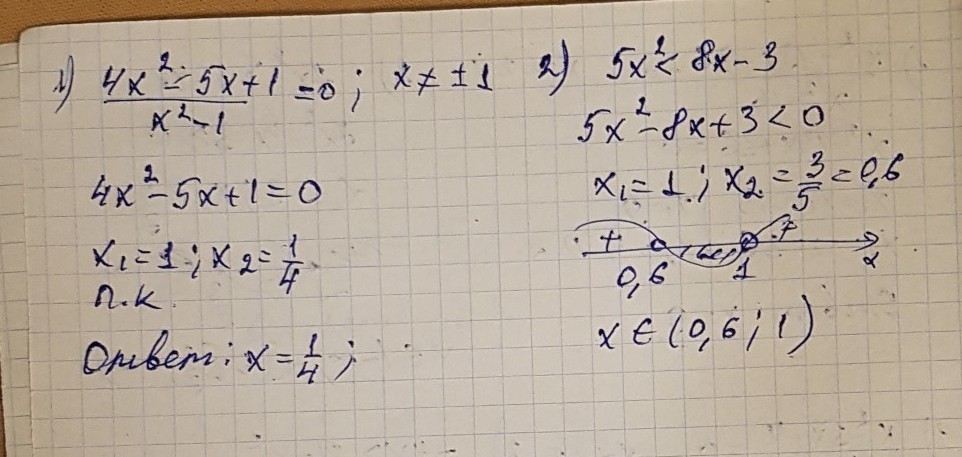 1) (4x² - 5x + 1)/(x² - 1) = 0; x ≠ ±1
4x² - 5x + 1 = 0
x₁ = 1; x₂ = 1/4
п.к.
Ответ: x = 1/4;
2) 5x² < 8x - 3
5x² - 8x + 3 < 0
x₁ = 1; x₂ = 3/5 = 0,6
+ +
0,6 1 x
x ∈ (0,6; 1)